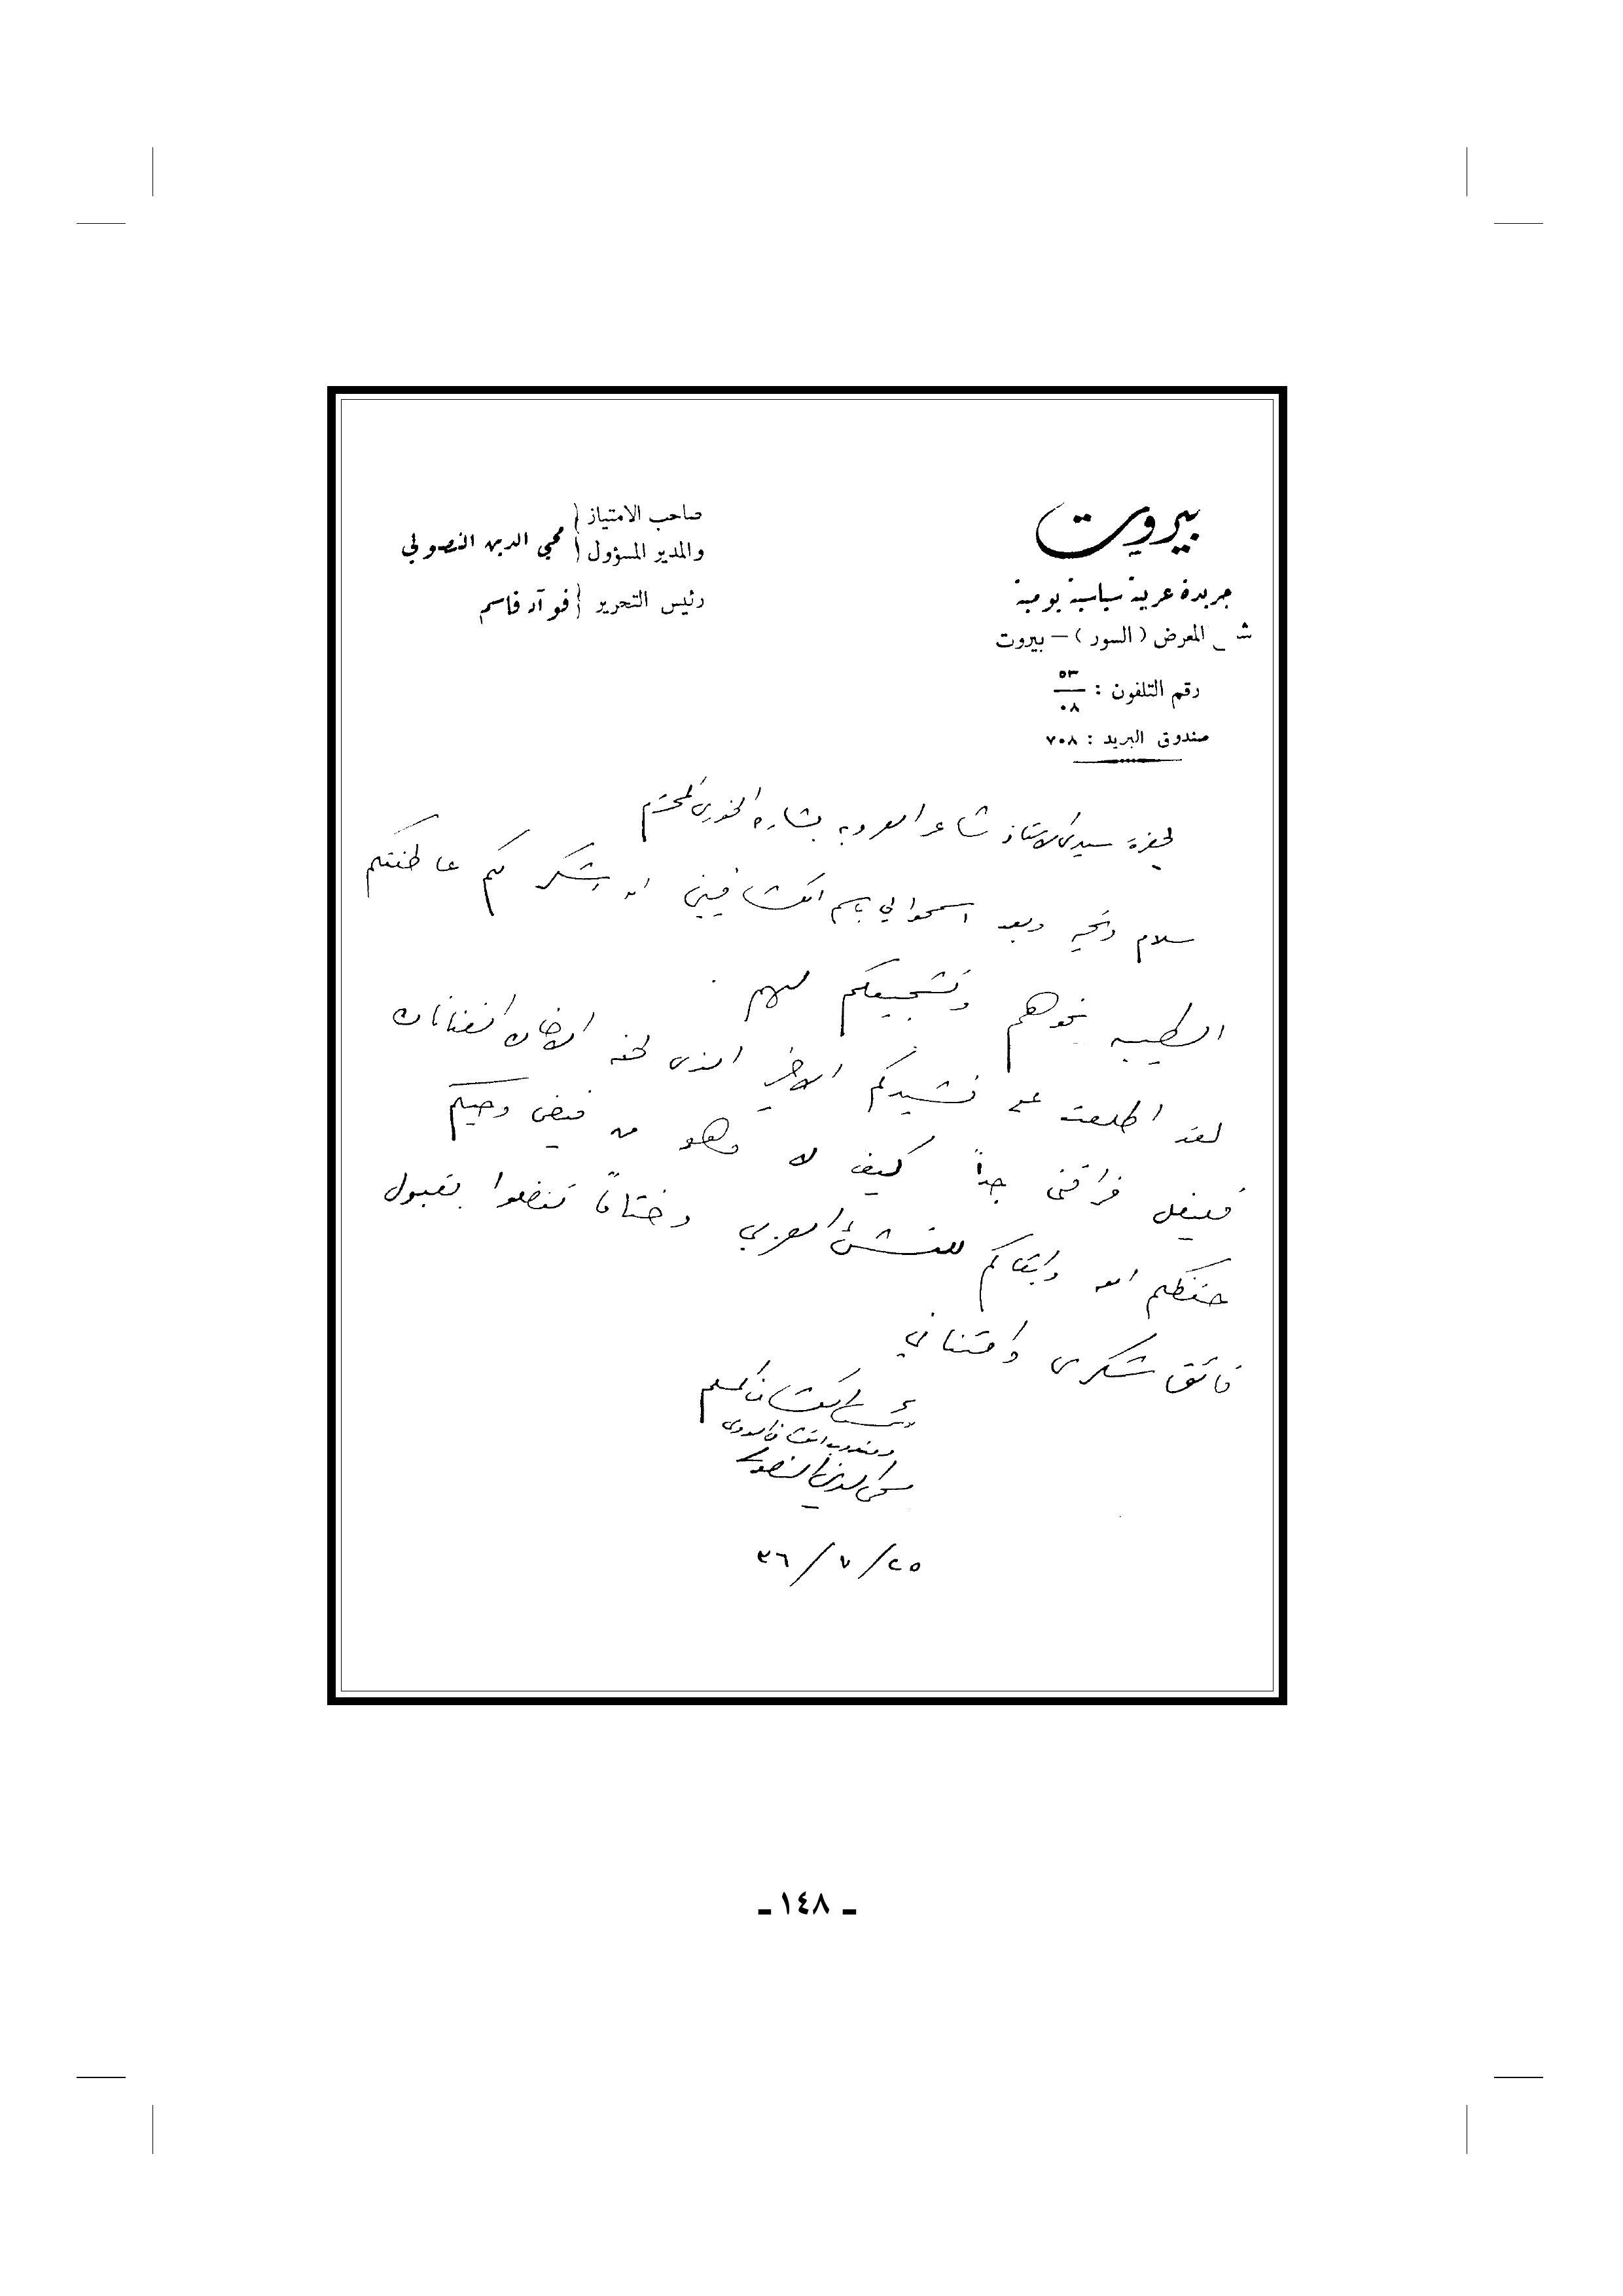 بيروت
جريدة عربية سياسية يومية
ش المعرض (السور) – بيروت
رقم التلفون : ٥٣ / ٠٨
صندوق البريد : ٧٠٨
صاحب الامتياز
والمدير المسؤول } محيي الدين النصولي
رئيس التحرير } فوآد قاسم
لحضرة سيدي الاستاذ شاعر العروبه بشاره الخوري المحترم
سلام وتحيه وبعد اسمحوا لي باسم الكشافيين ان اشكر لكم عاطفتكم
الطيبه نحوهم وتشجيعكم لهم .
لقد اطلعت على نشيدكم الاخير الذي لحنه الاخوان
فليفل فراقني جداً كيف لا وهو من فيض وحيكم
حفظكم الله وابقاكم للنشئ العربي وختاماً تفضلوا بقبول
فائق شكري وامتناني
الكشاف المسلم
ومندوب الكشاف الدولي
محي الدين النصولي
٢٥/٧/٣٦
ـ ١٤٨ ـ